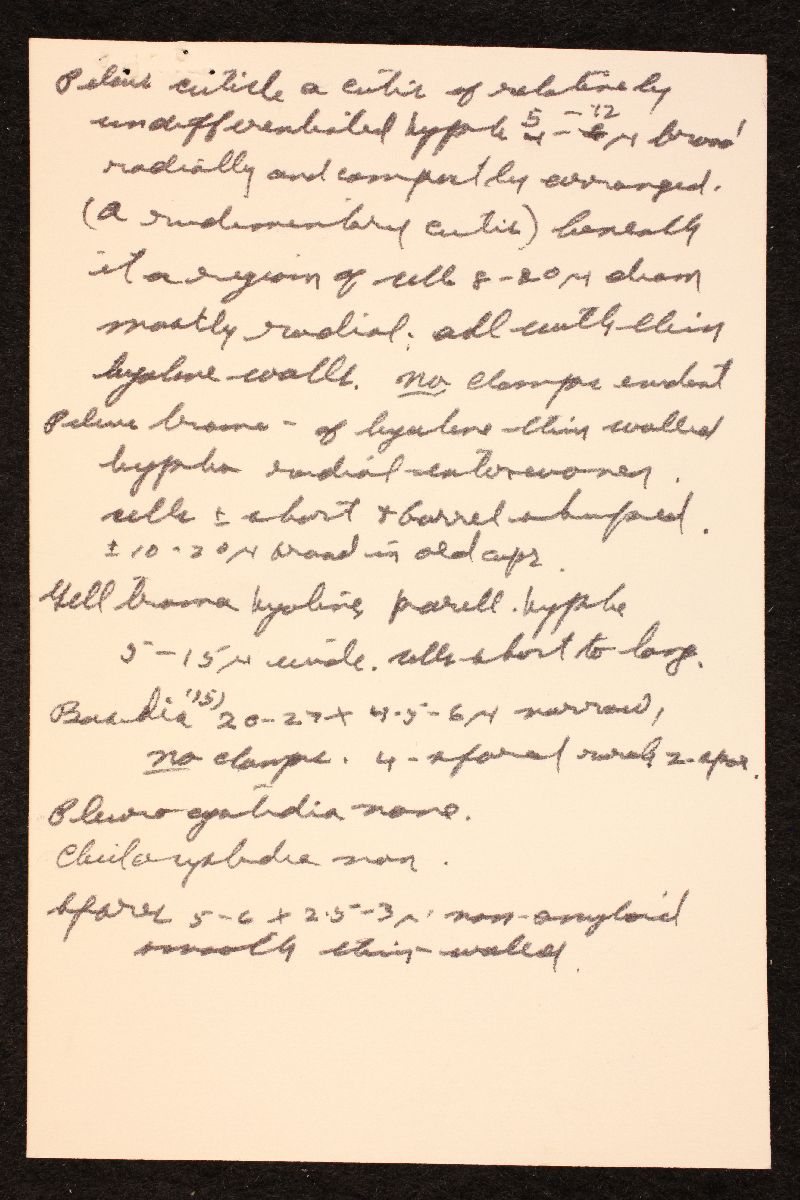 Pileus cuticle a cutis of relatively
undifferentiated hyphe 5 - 12 4 - 6 μ broad
radially and compactly arranged.
(a rudimentary cutis) beneath
it a region of cells 8-20 μ diam
mostly radial. all with thin
hyaline walls. no clamps evident
Pileus trama - of hyaline thin walled
hypha radial-interwoven.
cells ± short + barrel shaped.
± 10-20 μ broad in old caps.
Gill trama hyaline, parell. hyphe
5-15 μ wide. cells short to long.
Basidia (15) 20-27 x 4.5-6 μ narrow,
no clamps. 4-spored rarely 2-spor.
Pleurocystidia none.
Cheilocystidia non.
Spores 5-6 x 2.5-3 μ. non-amyloid
smooth thin-walled.